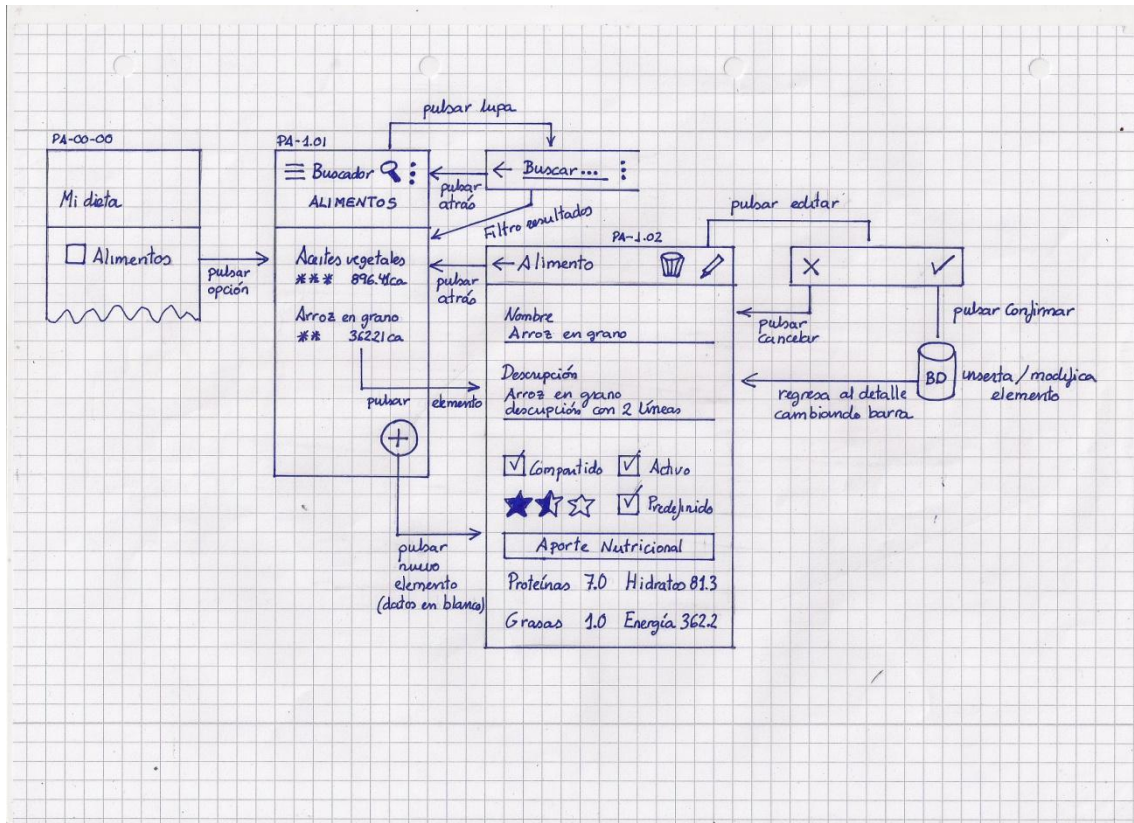 pulsar lupa
PA-00-00
Mi dieta
Alimentos
pulsar
opción
PA-1.01
Buscador
ALIMENTOS
Aceites vegetales
*** 896.41ca
Arroz en grano
** 362.21ca
pulsar elemento
pulsar
nuevo
elemento
(datos en blanco)
Buscar...
pulsar
atrás
Filtro resultados
pulsar
atrás
PA-1.02
Alimento
Nombre
Arroz en grano
Descripción
Arroz en grano
descripción con 2 líneas
Compartido Activo
Predefinido
Aporte Nutricional
Proteínas 7.0 Hidratos 81.3
Grasas 1.0 Energía 362.2
pulsar editar
X
pulsar
cancelar
pulsar Confirmar
BD
inserta/modifica
elemento
regresa al detalle
cambiando barra